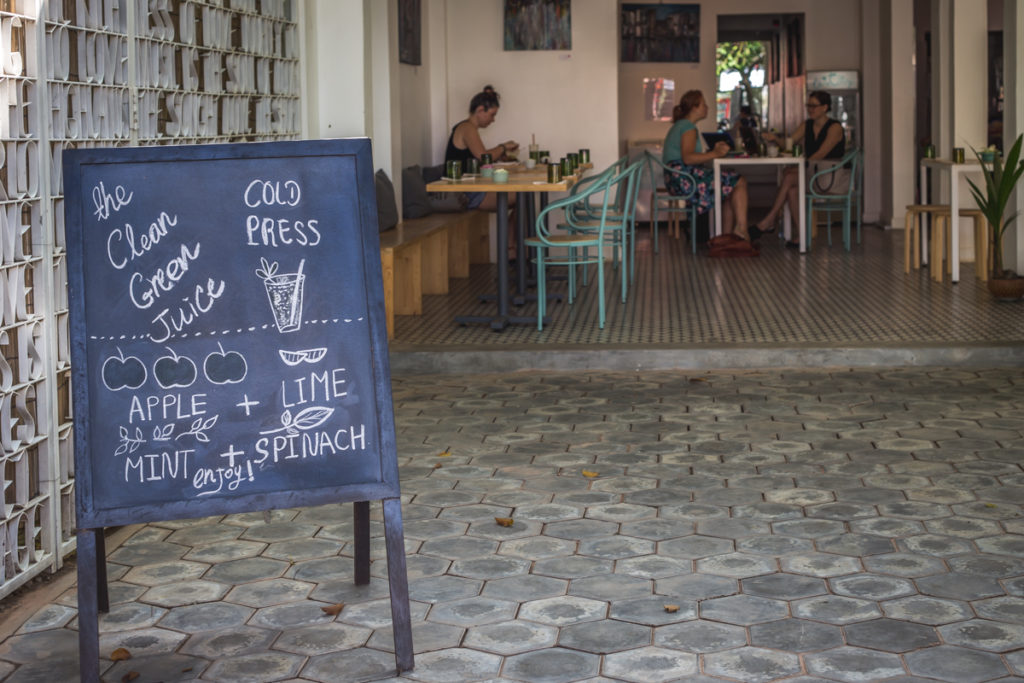 the
Clean
Green
Juice
COLD
PRESS
APPLE + LIME
MINT + SPINACH
enjoy!